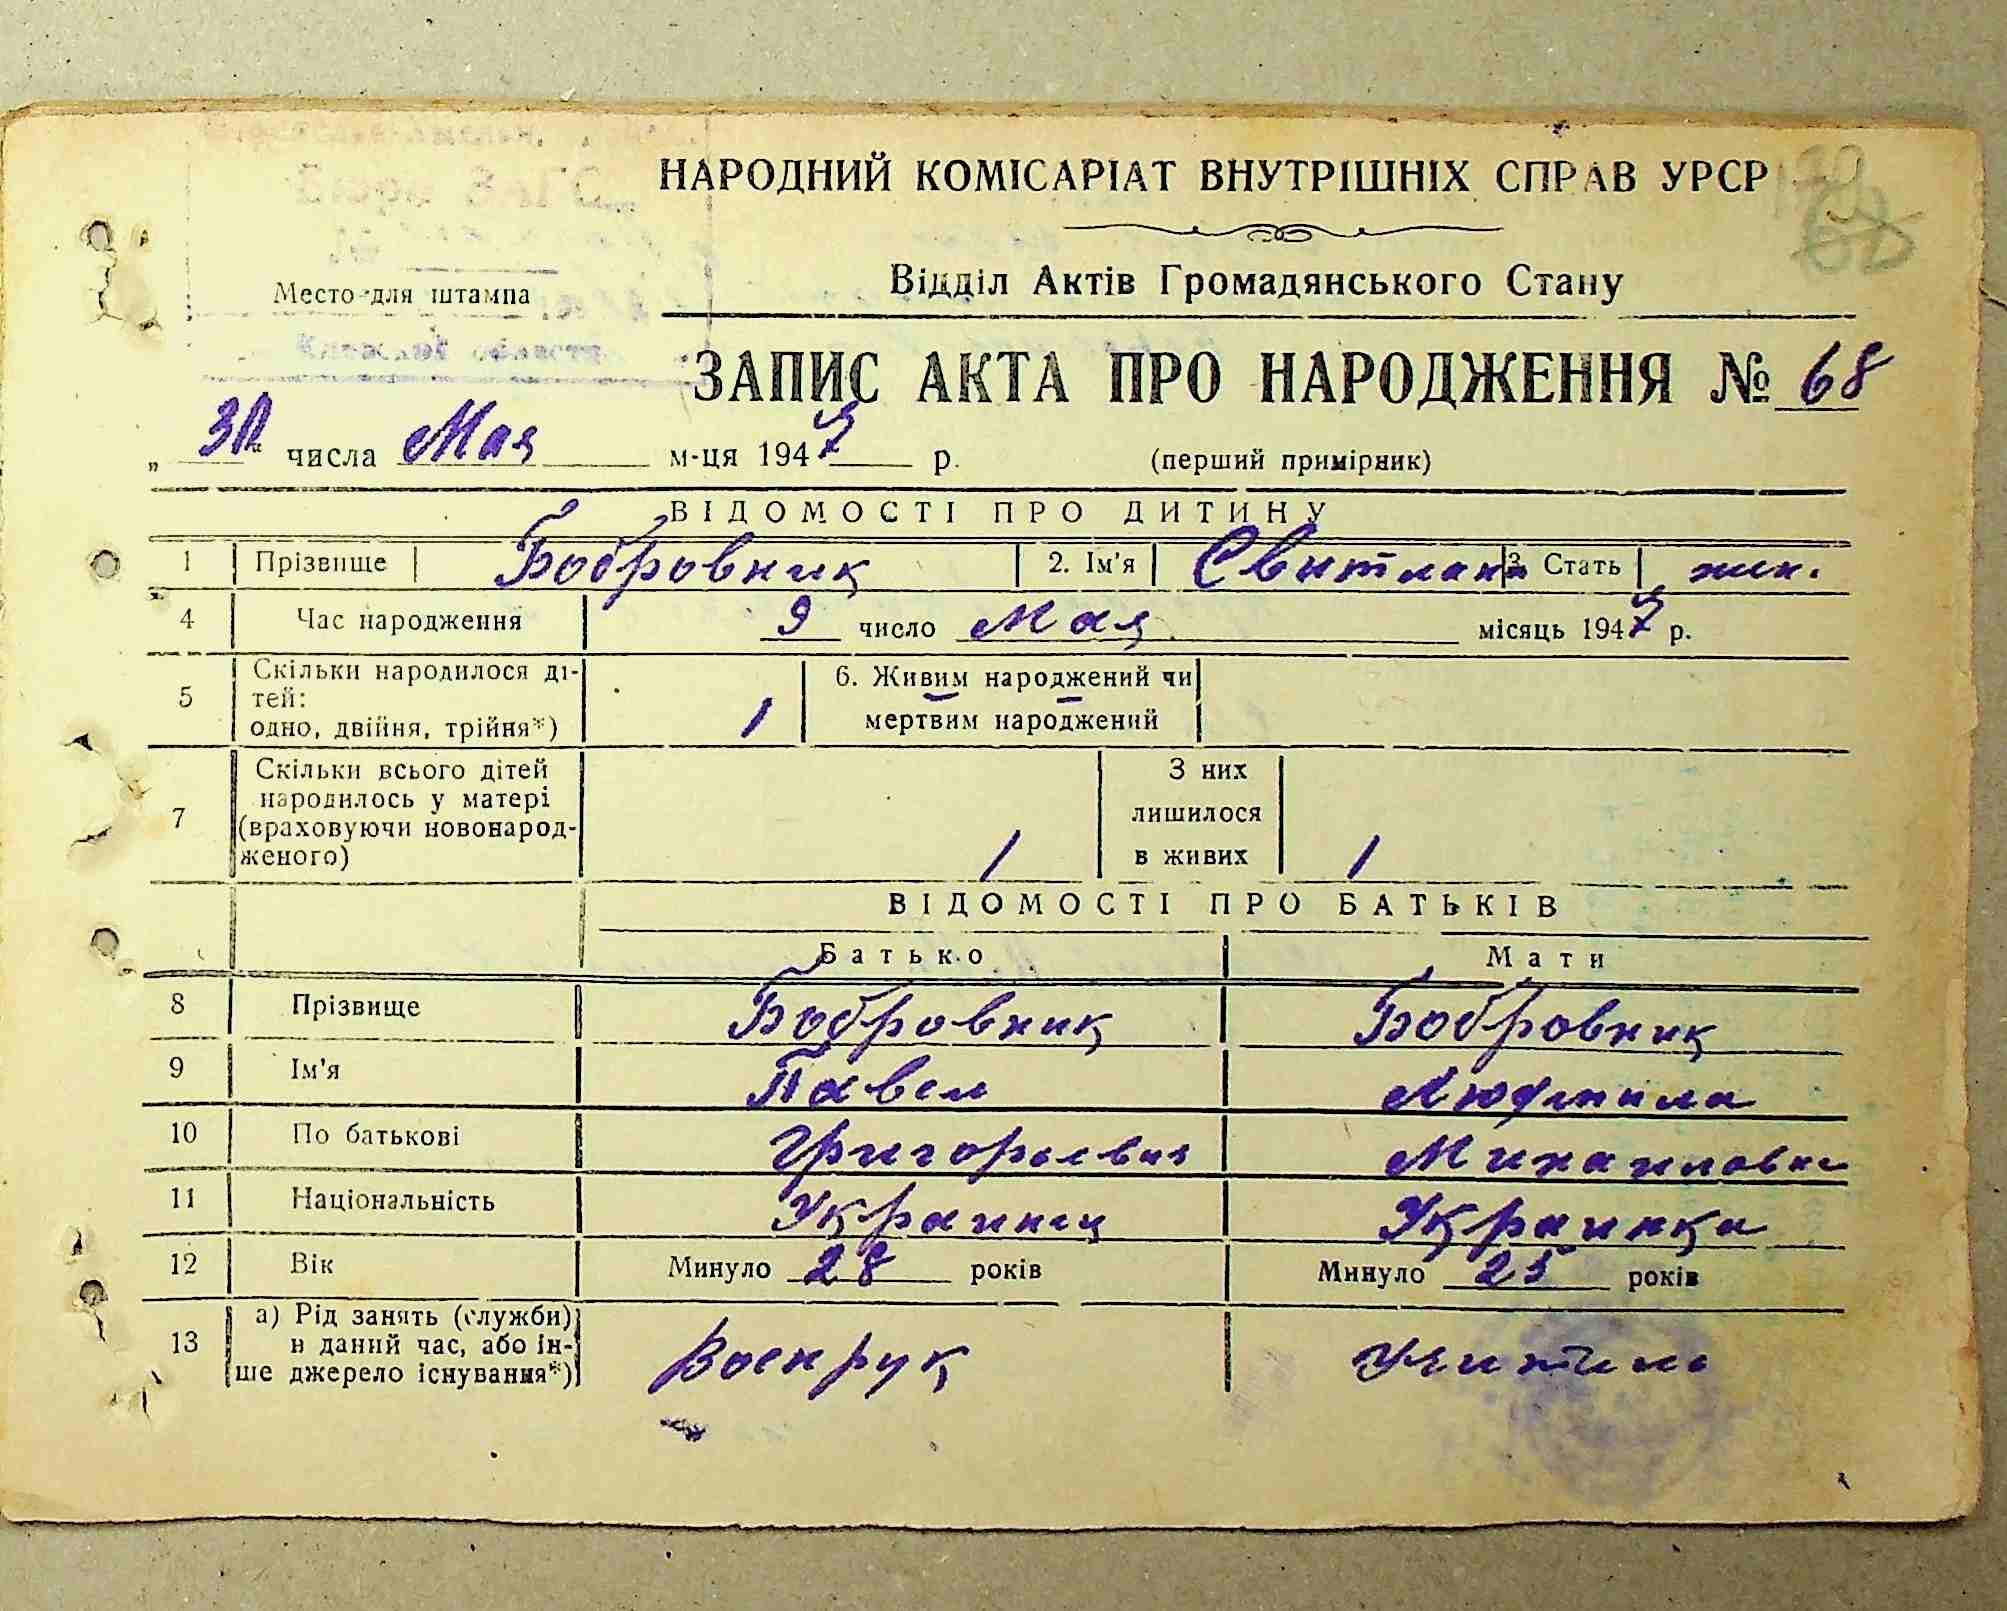 НАРОДНИЙ КОМІСАРІАТ ВНУТРІШНІХ СПРАВ УРСР
Відділ Актів Громадянського Стану
Место для штампа
ЗАПИС АКТА ПРО НАРОДЖЕННЯ № 68
„ 30 " числа Мая м-ця 1947 р. (перший примірник)
ВІДОМОСТІ ПРО ДИТИНУ
1 Прізвище Бобровник 2. Ім'я Свитлана 3. Стать жен.
4 Час народження 9 число Мая місяць 1947 р.
5 Скільки народилося ді-
тей:
одно, двійня, трійня*) 1
6. Живим народжений чи
мертвим народжений
7 Скільки всього дітей
народилось у матері
(враховуючи новонарод-
женого) 1
З них
лишилося
в живих 1
ВІДОМОСТІ ПРО БАТЬКІВ
Батько Мати
8 Прізвище Бобровник Бобровник
9 Ім'я Павел Людмила
10 По батькові Григорьевич Михаиловна
11 Національність Украинец Украинка
12 Вік Минуло 28 років Минуло 25 років
13 а) Рід занять (служби)
в даний час, або ін-
ше джерело існування*) Военрук Учитель